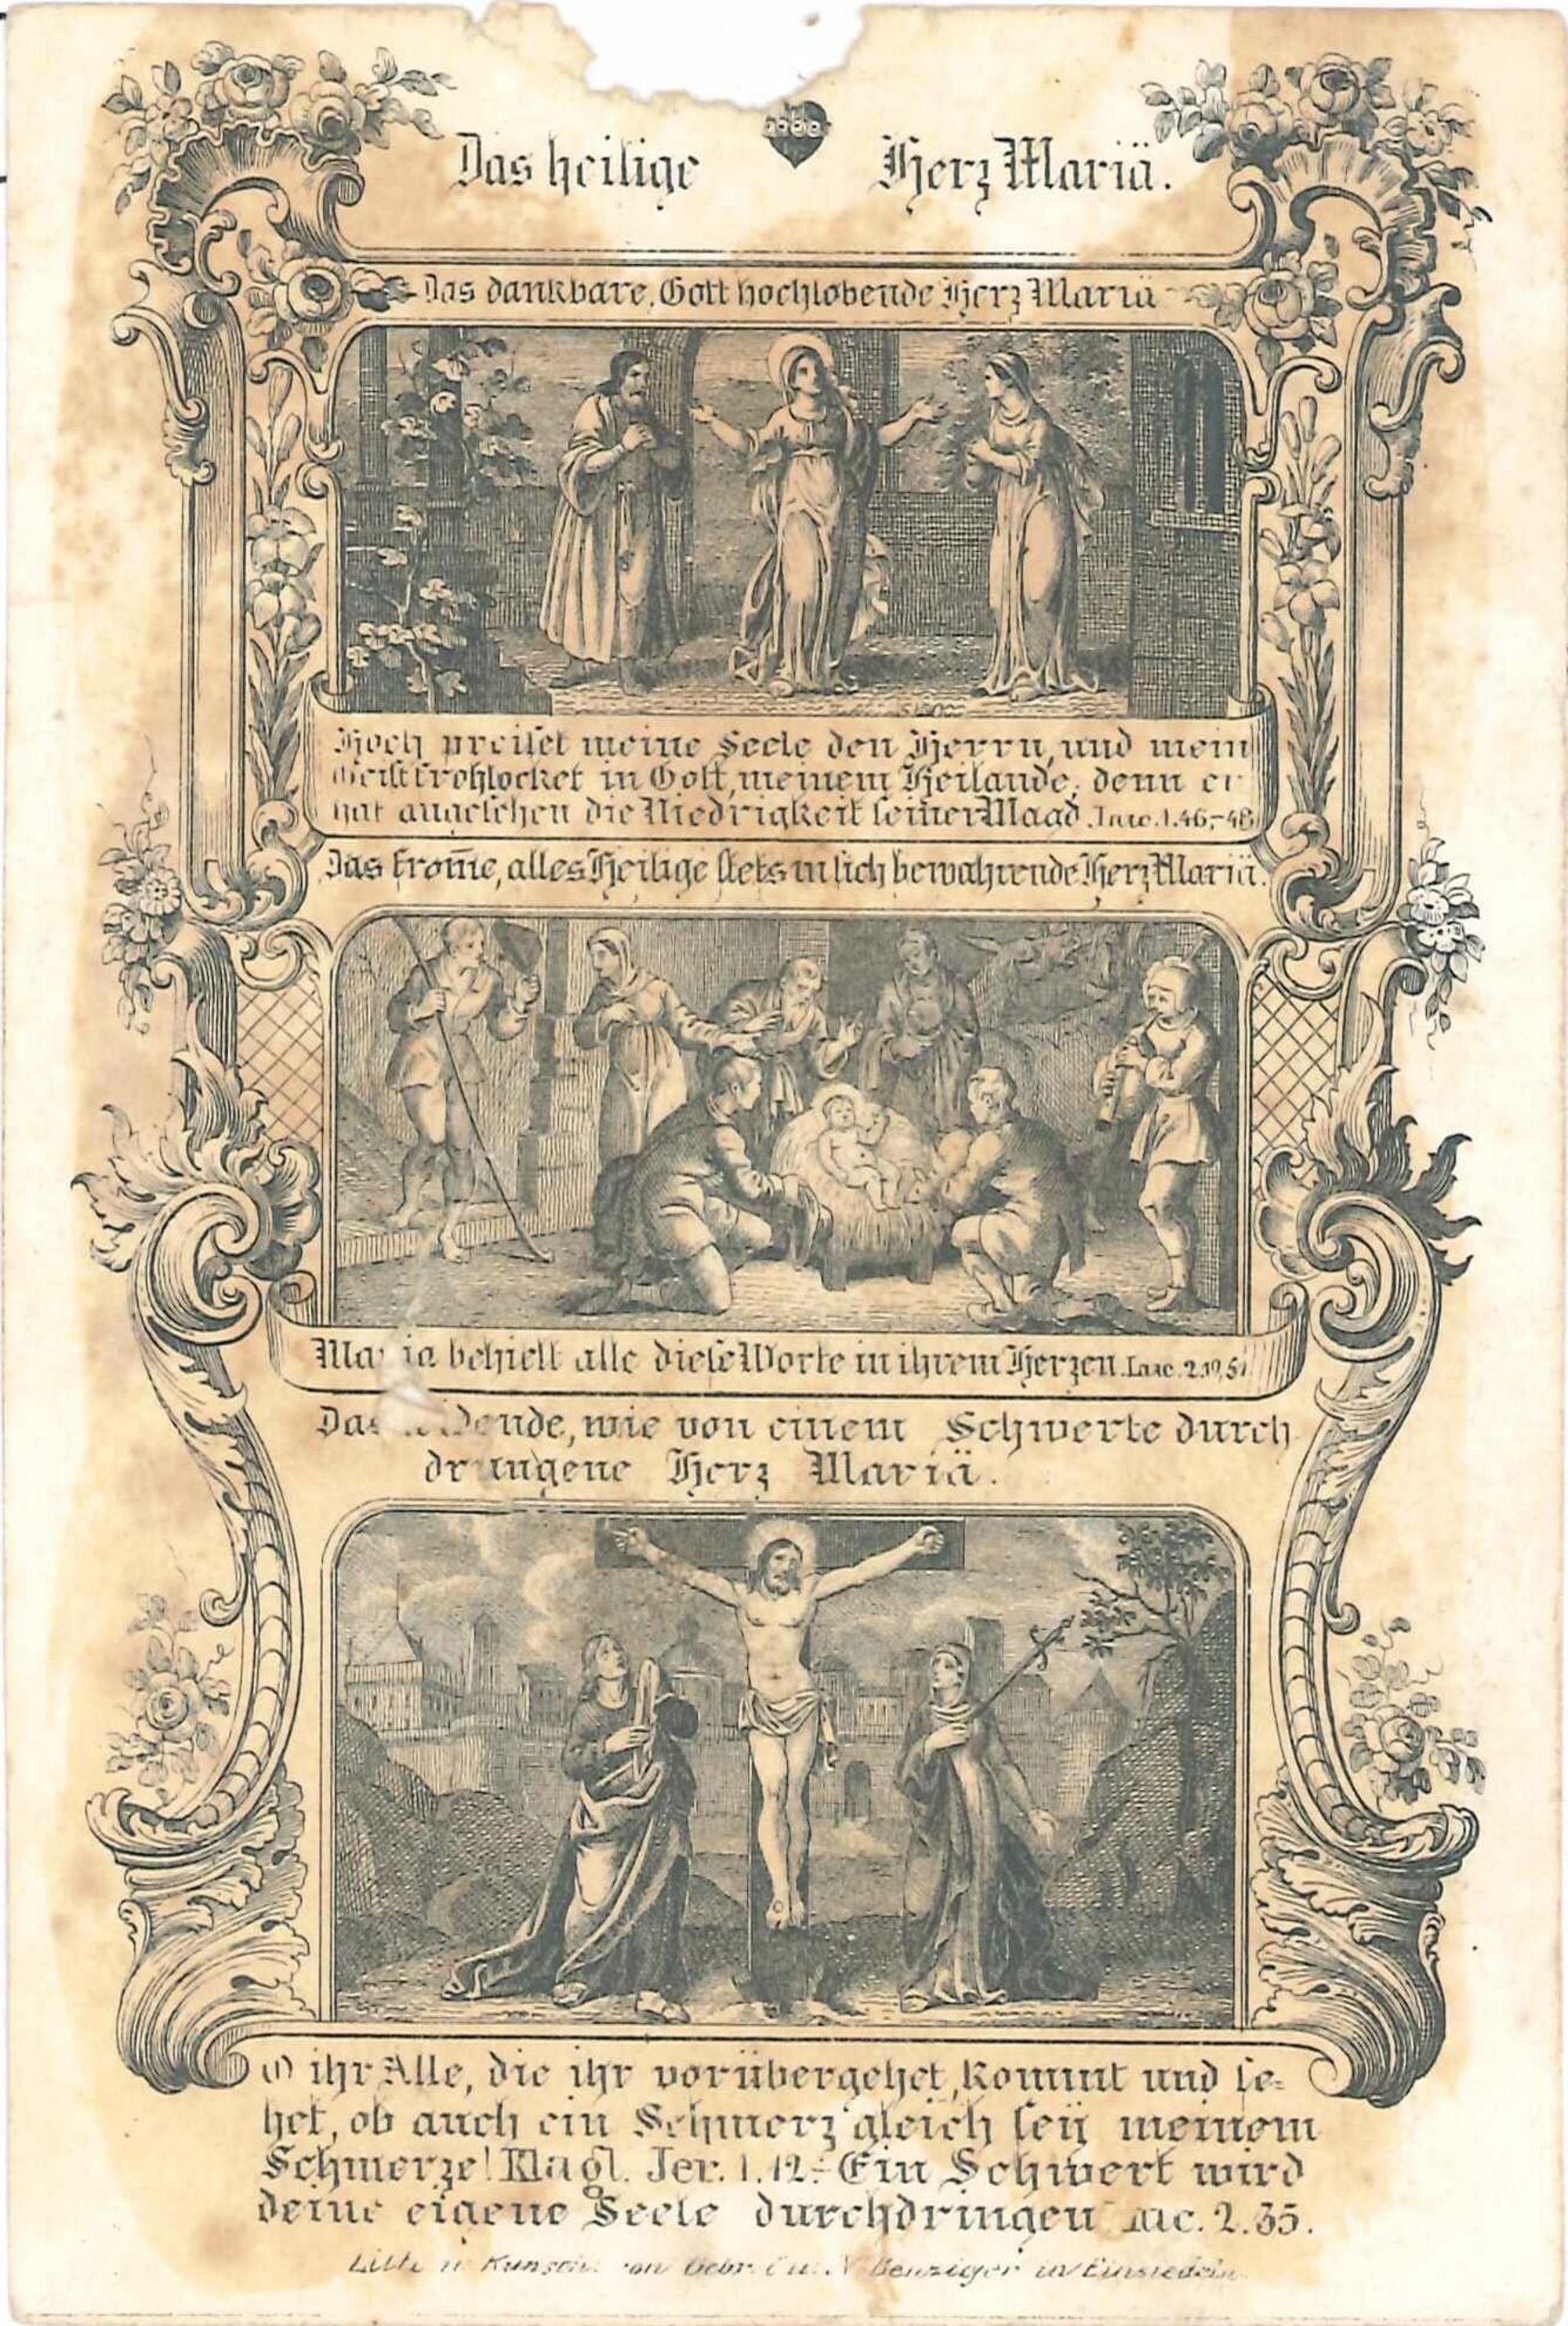 Das heilige Herz Mariä.
Das dankbare, Gott hochlobende Herz Mariä
Hoch preiset meine Seele den Herrn, und mein
Geist frohlocket in Gott, meinem Heilande; denn er
hat angesehen die Niedrigkeit seiner Magd. Luc. 1. 46,-48
Das from̅e, alles Heilige stets in sich bewahrende Herz Mariä.
Maria behielt alle diese Worte in ihrem Herzen. Luc. 2. 19, 51
Das leidende, wie von einem Schwerte durch
drungene Herz Mariä.
O ihr Alle, die ihr vorübergehet, kommt und se=
het, ob auch ein Schmerz gleich seÿ meinem
Schmerze! Klagl. Jer. 1. 12.- Ein Schwert wird
deine eigene Seele durchdringen Luc. 2. 35.
Lith. u. Kunsth. von Gebr. C. u. N. Benziger in Einsiedeln